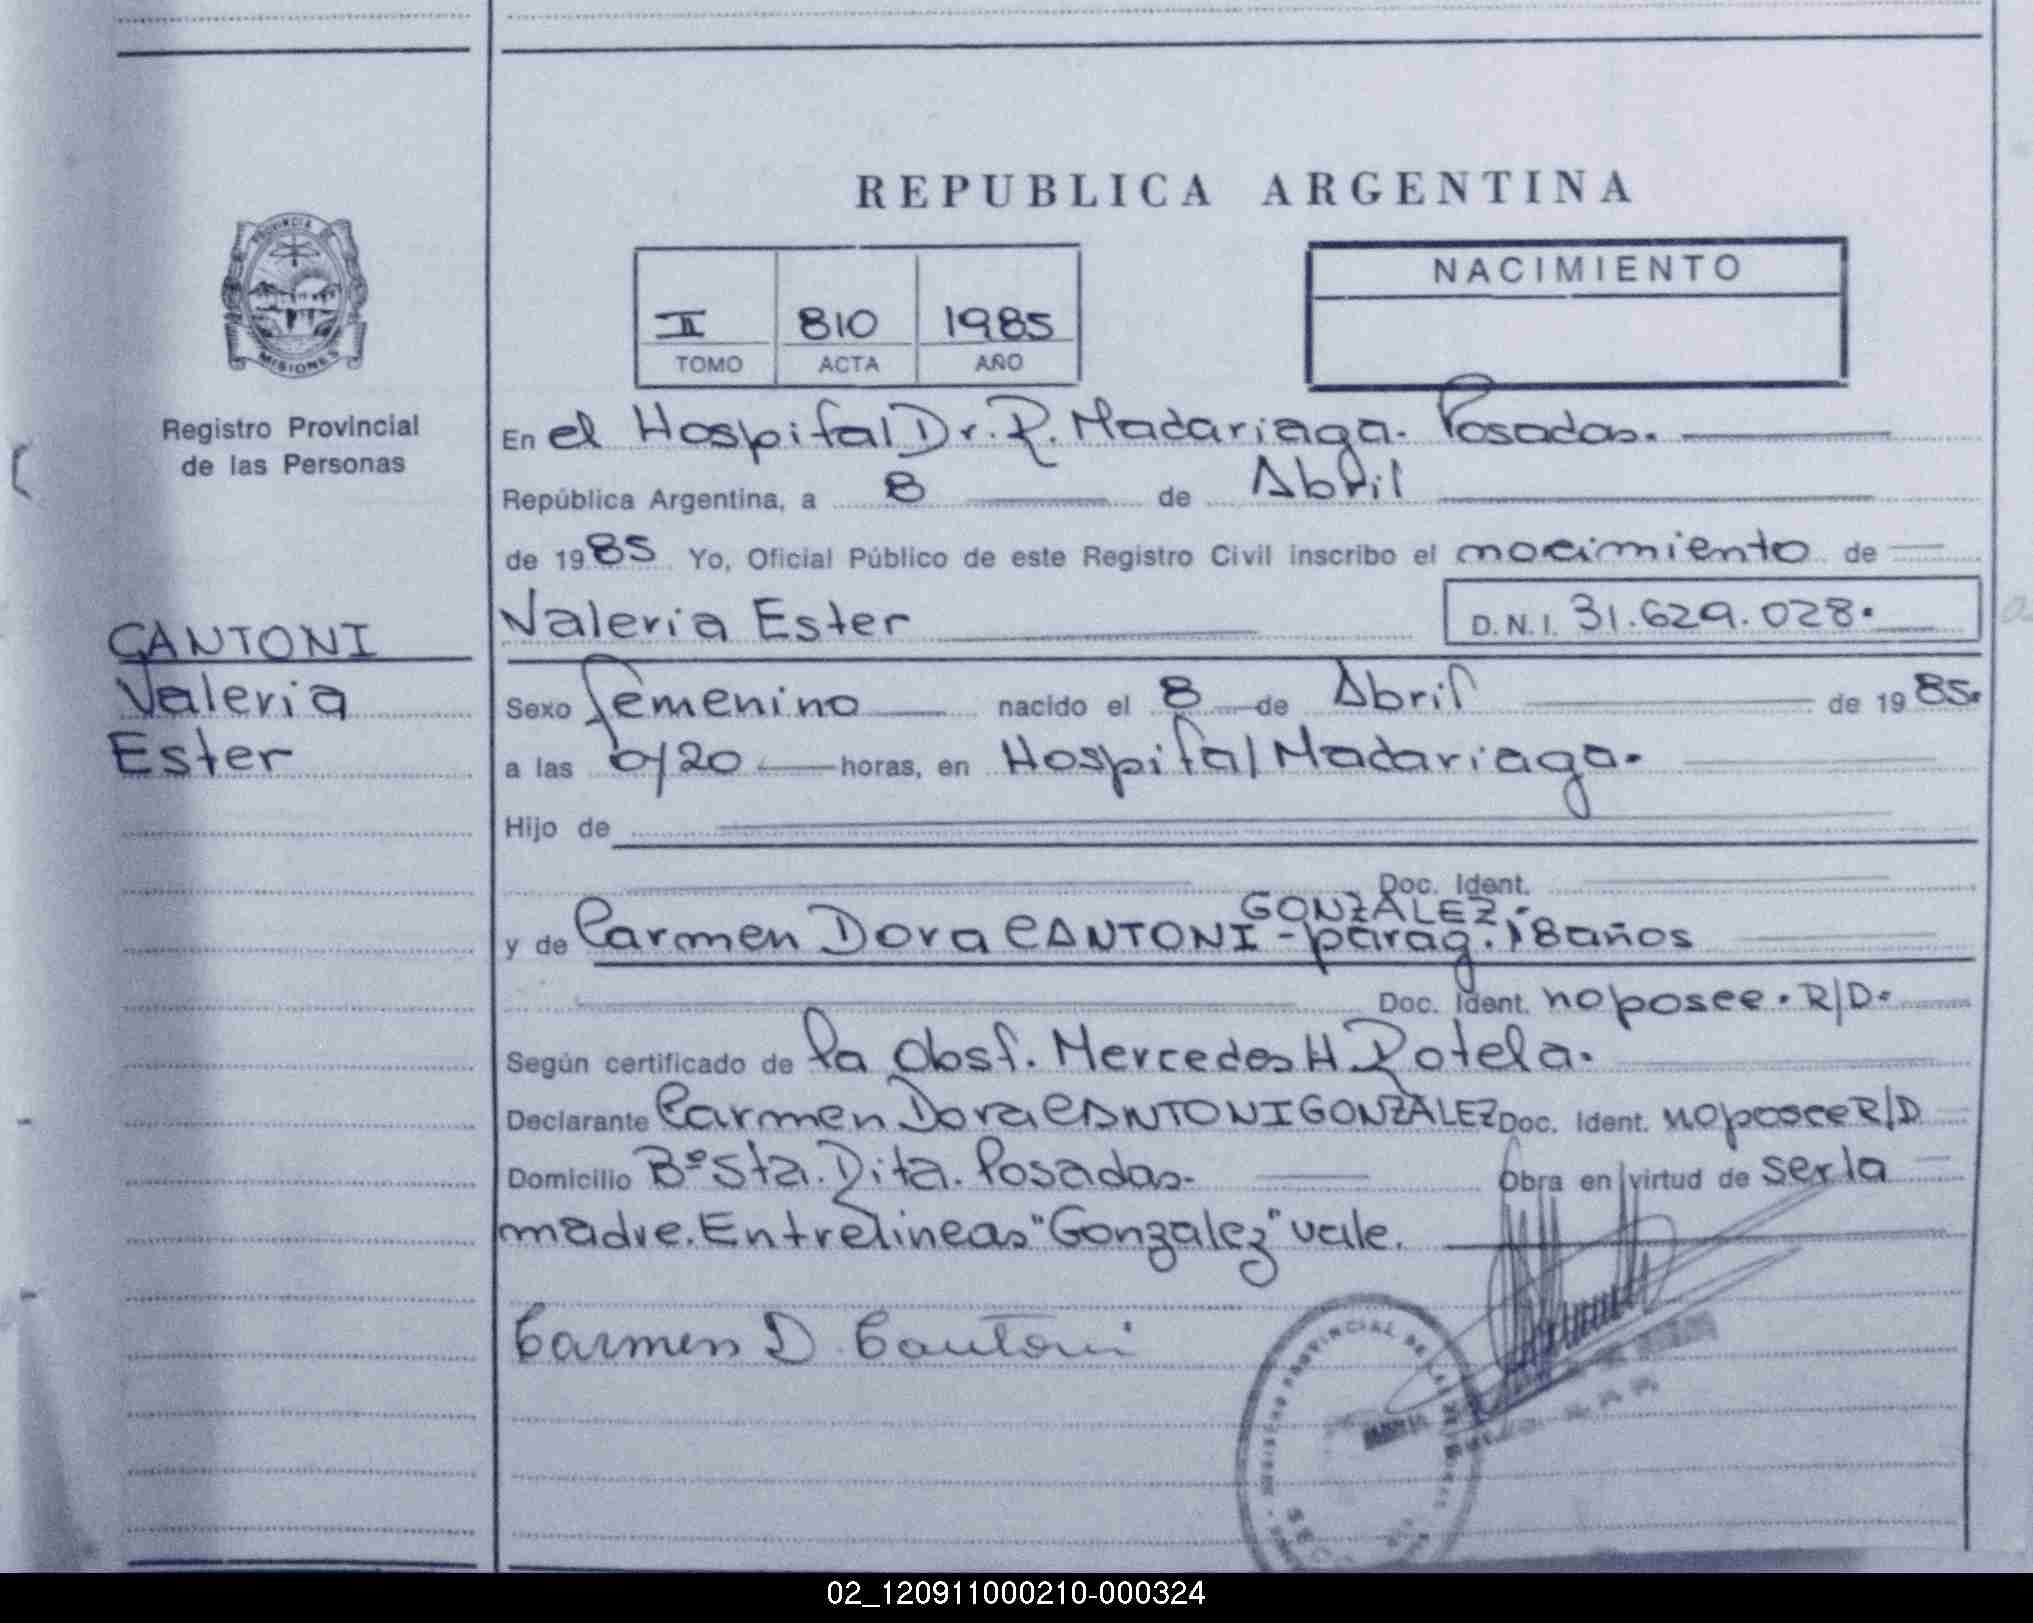 REPUBLICA ARGENTINA
PROVINCIA DE
MISIONES
Registro Provincial
de las Personas
II 810 1985
TOMO ACTA AÑO
NACIMIENTO
En el Hospital Dr. R. Madariaga. Posadas.
República Argentina, a 8 de Abril
de 1985 Yo, Oficial Público de este Registro Civil inscribo el nacimiento de
Valeria Ester D.N.I. 31.629.028.
CANTONI
Valeria
Ester
Sexo femenino nacido el 8 de Abril de 1985.
a las 0/20 horas, en Hospital Madariaga.
Hijo de
Doc. Ident.
GONZALEZ
y de Carmen Dora CANTONI - parag. 18 años
Doc. Ident. no posee. R/D.
Según certificado de la Obst. Mercedes H. Rotela.
Declarante Carmen Dora CANTONI GONZALEZ Doc. Ident. no posee R/D
Domicilio Bº Sta. Rita. Posadas. Obra en virtud de ser la
madre. Entrelineas "Gonzalez" vale.
Carmen D. Cantoni
PROVINCIAL DE LAS
02_120911000210-000324